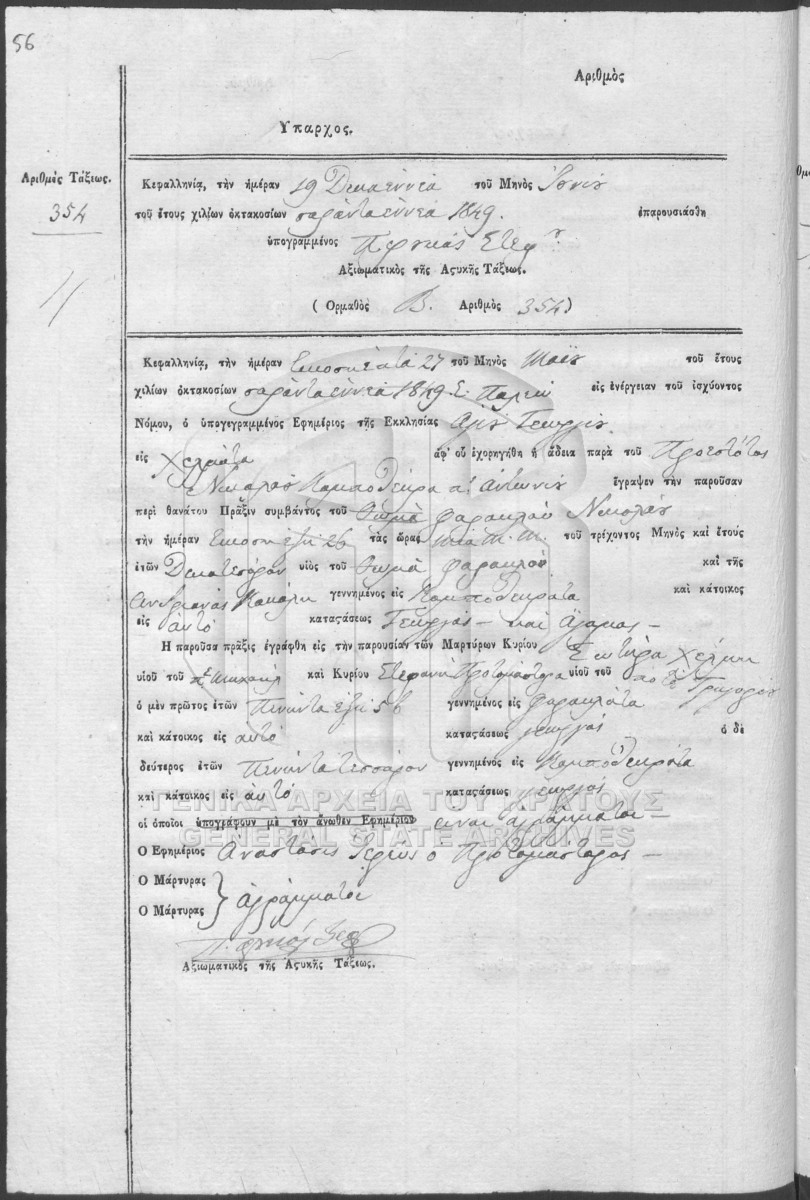 56
Αριθμὸς
Υπαρχος.
Αριθμὸς Τάξεως.
354
Κεφαλληνία, τὴν ἡμέραν 19 Δεκαεννέα τοῦ Μηνὸς Ιουνίου
τοῦ ἔτους χιλίων ὀκτακοσίων σαράντα εννέα 1849. ἐπαρουσιάσθη
ὑπογραμμένος
Αξιωματικὸς τῆς Αςυκῆς Τάξεως.
( Ορμαθὸς Β. Αριθμὸς 354)
Κεφαλληνία, τὴν ἡμέραν Εικοσιεπτά 27 τοῦ Μηνὸς Μαΐου τοῦ ἔτους
χιλίων ὀκτακοσίων σαράντα εννέα 1849. Ε. Παλαιού εἰς ἐνέργειαν τοῦ ἰσχύοντος
Νόμου, ὁ ὑπογεγραμμένος Εφημέριος τῆς Εκκλησίας Αγίου Γεωργίου
εἰς ἀφ' οὗ ἐχορηγήθη ἡ ἄδεια παρὰ τοῦ Προεστότος
Νικολάου Καμποθέκρα Αντωνίου ἔγραψεν τὴν παροῦσαν
περὶ θανάτου Πρᾶξιν συμβάντος τοῦ Θωμά Φαρακλού Νικολάου
τὴν ἡμέραν Εικοσιέξη 26 τὰς ὥρας μία Π. Μ. τοῦ τρέχοντος Μηνὸς καὶ ἔτους
ἐτῶν Δεκατεσάρον υἱὸς τοῦ Θωμά Φαρακλού καὶ τῆς
Ανδριανάς γεννημένος εἰς Καμποθεκράτα καὶ κάτοικος
εἰς αυτό καταςάσεως Γεωργός – και Άγαμος –
Η παροῦσα πρᾶξις ἐγράφθη εἰς τὴν παρουσίαν τῶν Μαρτύρων Κυρίου Σωτήρα
υἱοῦ τοῦ π.τ Μιχαήλ καὶ Κυρίου Στεφανή Πρωτομάστορα υἱοῦ τοῦ ποτέ Γρηγορίου
ὁ μὲν πρῶτος ἐτῶν Πενίντα έξη 56 γεννημένος εἰς Φαρακλάτα
καὶ κάτοικος εἰς αυτό καταςάσεως γεωργός ὁ δὲ
δεύτερος ἐτῶν Πενίντα τεσσάρον γεννημένος εἰς Καμποθεκράτα
καὶ κάτοικος εἰς αυτό καταςάσεως γεωργός
οἱ ὁποῖοι ὑπογράφουν μὲ τὸν ἄνωθεν Εφημέριον είναι αγράμματοι –
Ο Εφημέριος Αναστάσις Ιερεύς ο Πρωτομάστορας –
Ο Μάρτυρας
Ο Μάρτυρας } αγράμματοι
Αξιωματικὸς τῆς Αςυκῆς Τάξεως.
ΓΕΝΙΚΑ ΑΡΧΕΙΑ ΤΟΥ ΚΡΑΤΟΥΣ
GENERAL STATE ARCHIVES